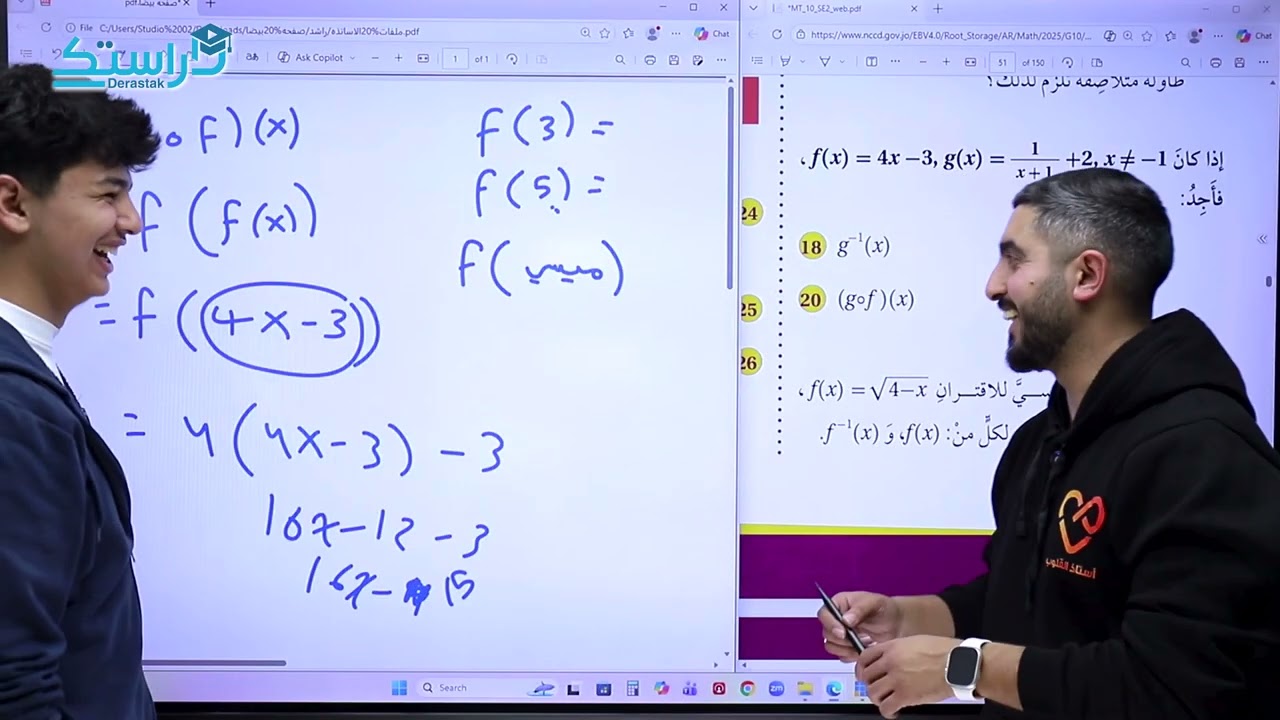 صفحه بيضا.pdf*
File C:/Users/Studio%2002/
ads/ملفات%20الاساتذه/راشد/صفحه%20بيضا.pdf
Chat
Ask Copilot
1 of 1
دراستك
Derastak
o f)(x)
f(f(x))
= f((4x-3))
= 4(4x-3) -3
16x-12 -3
16x- 15
f(3) =
f(5) =
f(ميسي)
*MT_10_SE2_web.pdf
https://www.nccd.gov.jo/EBV4.0/Root_Storage/AR/Math/2025/G10/...
Chat
51 of 150
طاولة متلاصفة تلزم لذلك؟
إذا كانَ f(x) = 4x −3, g(x) = 1/(x+1) +2, x ≠ −1،
فأَجِدُ:
24
18 g⁻¹(x)
25
20 (g∘f)(x)
26
ـسـيَّ للاقتـرانِ f(x) = √(4−x)،
لكلٍّ منْ: f(x)، وَ f⁻¹(x).
أستاذ القلوب
Search
zm